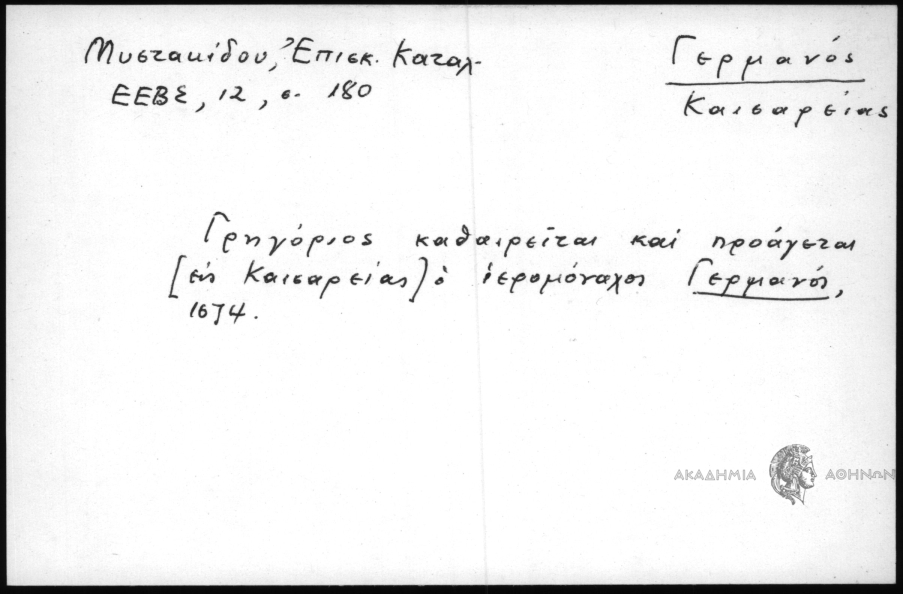 Μυστακίδου, Ἐπισκ. Καταλ.
ΕΕΒΣ, 12, σ. 180
Γερμανός
Καισαρείας
Γρηγόριος καθαιρεῖται καί προάγεται
[εἰς Καισαρείας] ὁ ἱερομόναχος Γερμανός,
1674.
ΑΚΑΔΗΜΙΑ ΑΘΗΝΩΝ